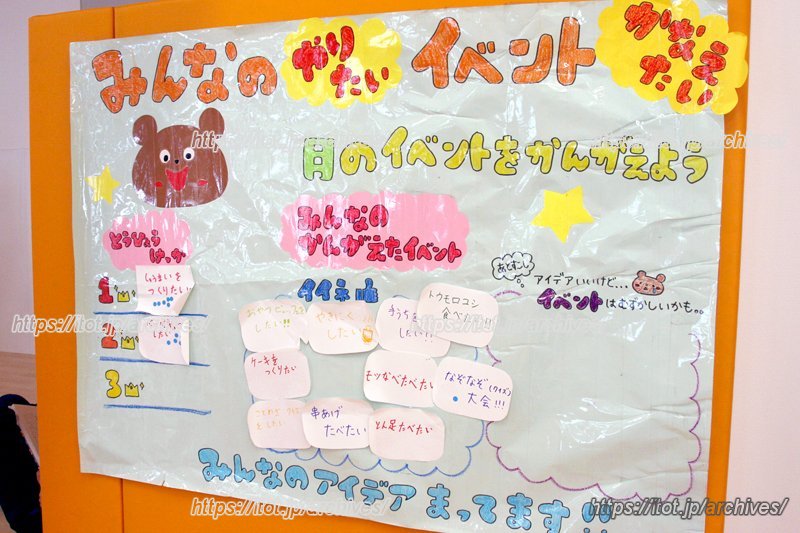 みんなの やりたい イベント かなえたい
月のイベントをかんがえよう
とうひょう
けっか
みんなの
かんがえたイベント
あとすこし
アイデアいいけど...
イベントはむずかしいかも。。
1
しゅうまいを
つくりたい
2
したい
3
イイネ
したい!!
やきにく
したい
したい!!
トウモロコシ
食べたい!!!
ケーキを
つくりたい
モツなべたべたい
なぞなぞ(クイズ)
大会!!!
をしたい
串あげ
たべたい
とん足たべたい
みんなのアイデアまってます!!
https://itot.jp/archives/
https://itot.jp/archives/
https://itot.jp/archives/
https://itot.jp/archives/
https://itot.jp/archives/
https://itot.jp/archives/